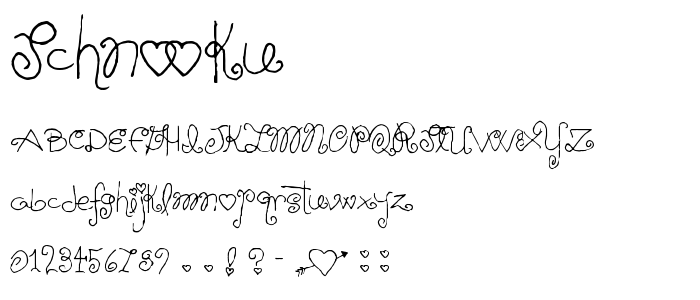 Schnookie
ABCDEFGHIJKLMNOPQRSTUVWXYZ
abcdefghijklmnopqrstuvwxyz
0123456789 . .. ! ? - : :